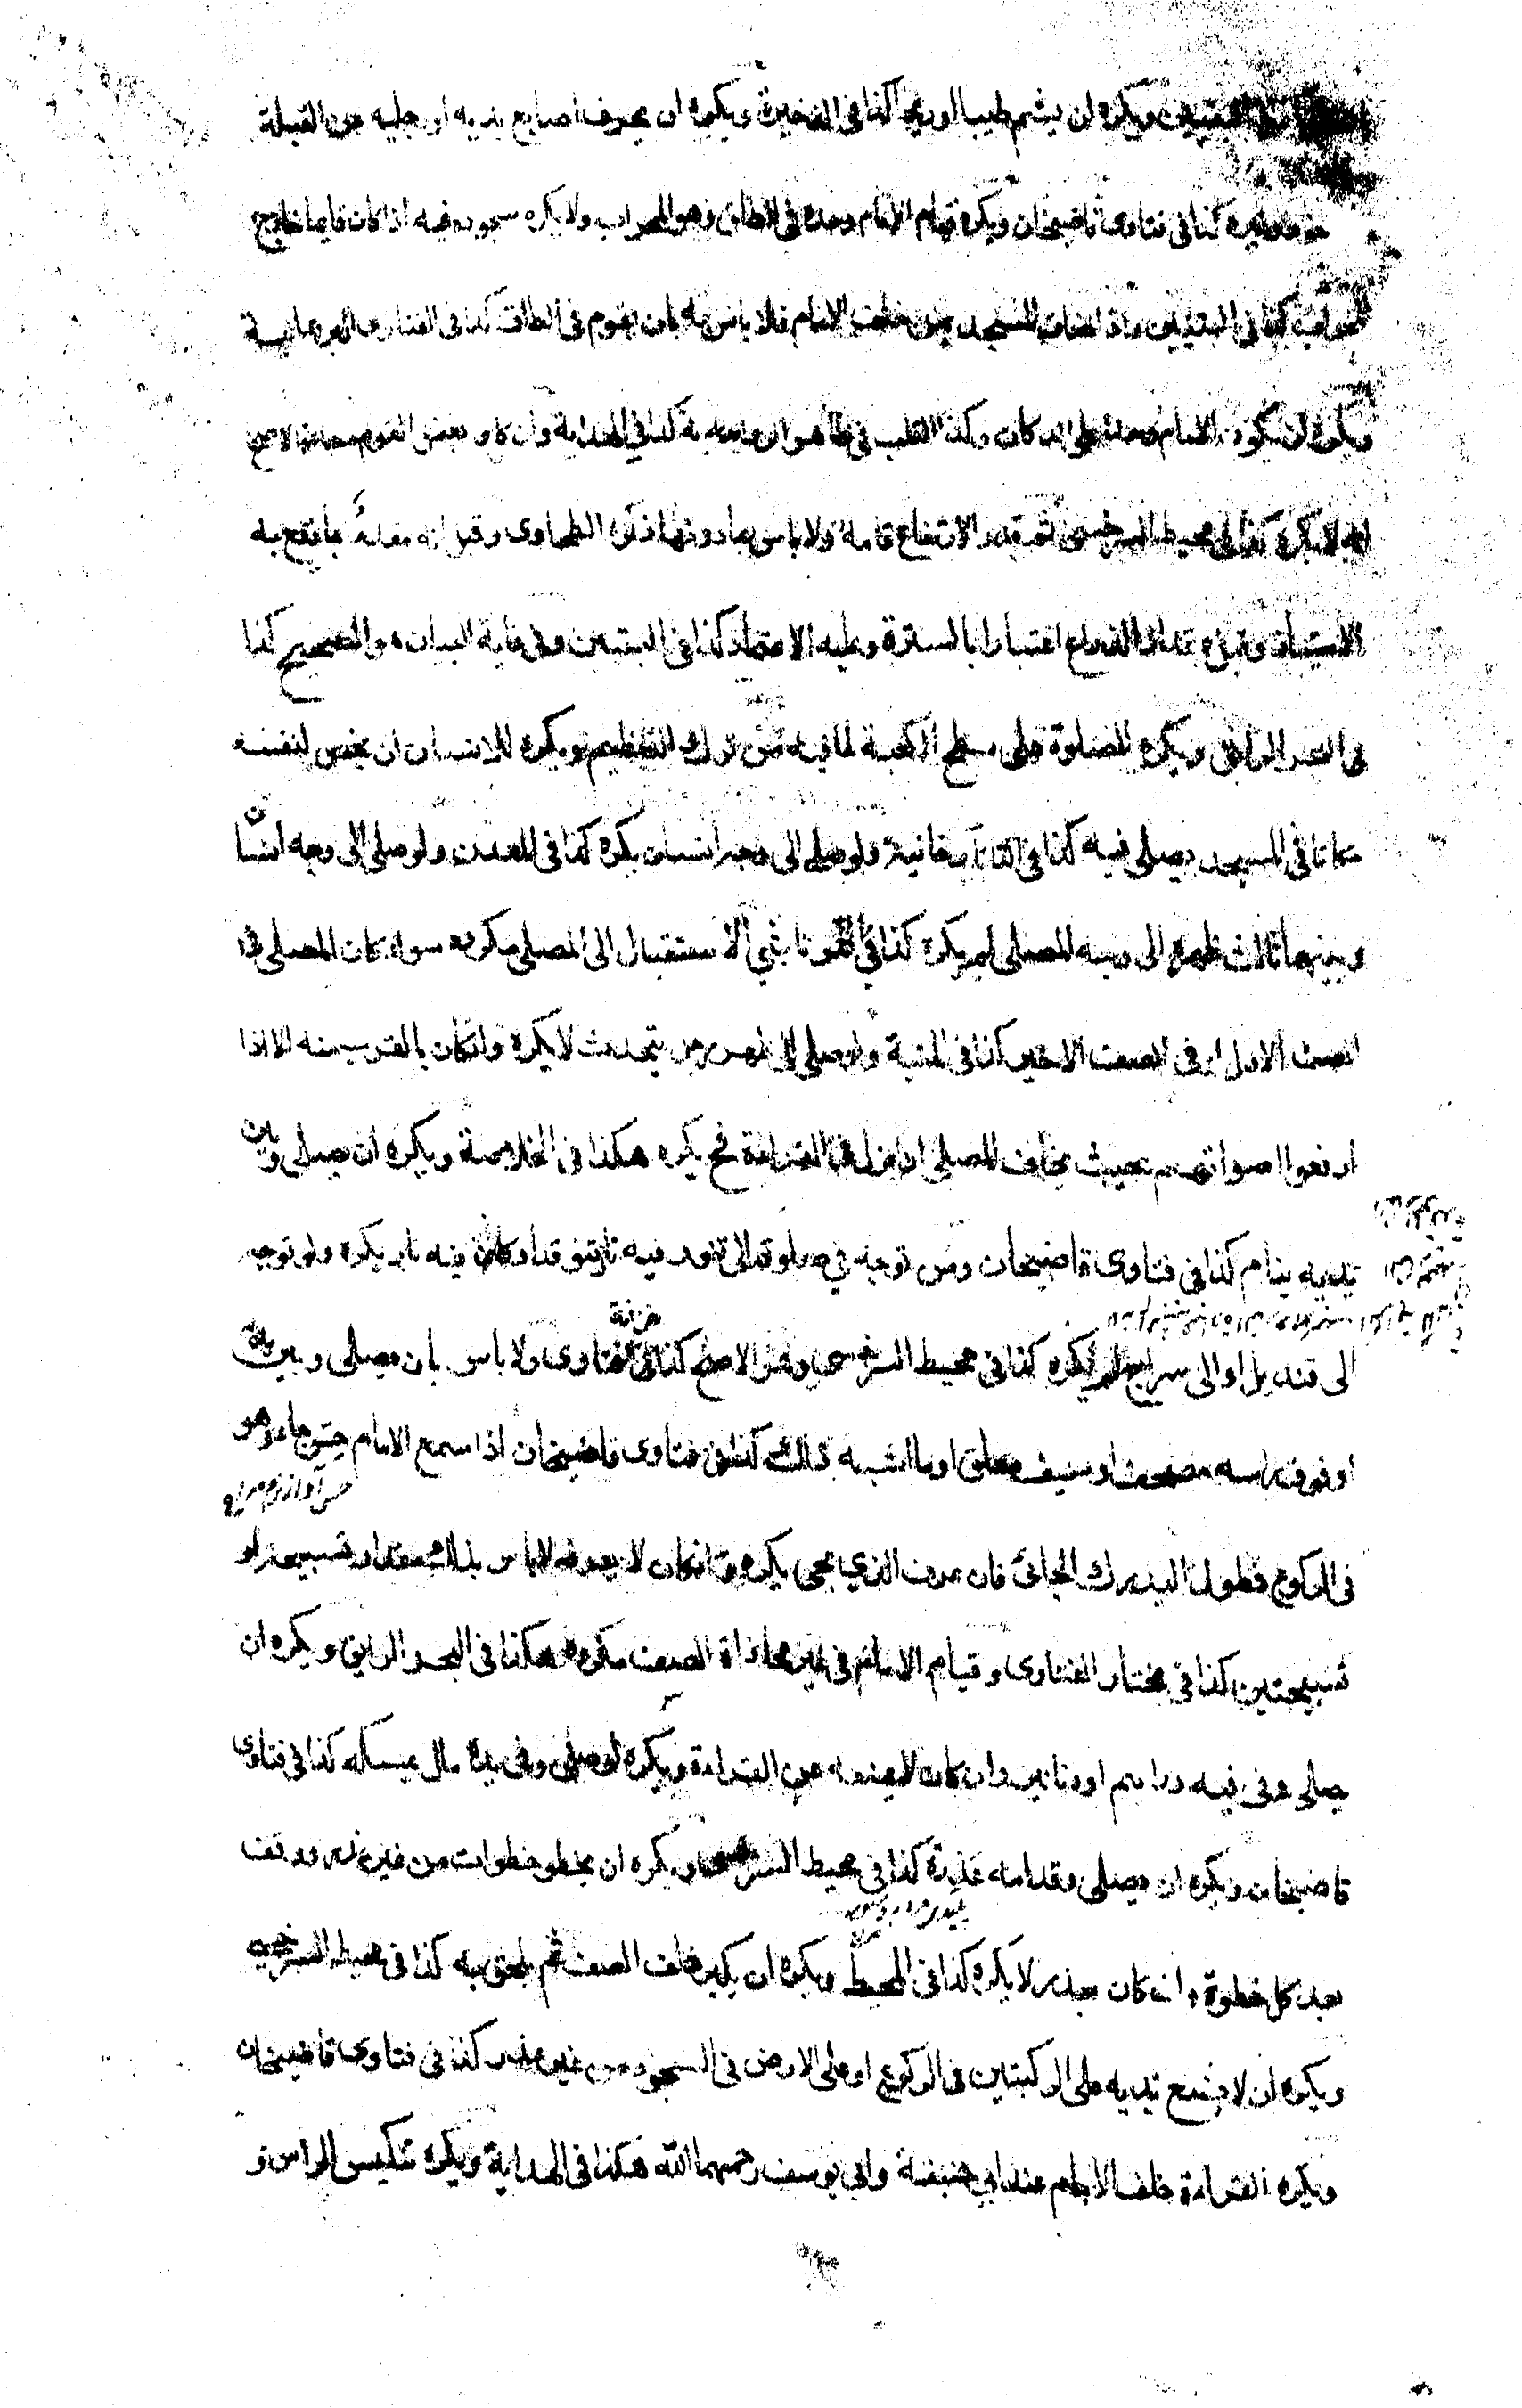 التبيين ويكره ان يشم طيبا او ريحا كذا فى الذخيرة ويكره ان يحرف اصابع يديه او رجليه عن القبلة
كذا فى فتاوى قاضيخان ويكره قيام الامام وحده فى الطاق وهو المحراب ولا يكره سجوده فيه اذا كان قايما خارج
المحراب كذا فى التبيين واذا ضاق المسجد بمن خلف الامام فلا باس بان يقوم فى الطاق كذا فى الفتاوى البرهانية
ويكره ان يكون الامام وحده على الدكان وكذا القلب فى ظاهر الرواية كذا فى الهداية وان كان بعض القوم معه الاصح
انه لا يكره كذا فى محيط السرخسى ثم قدر الارتفاع قامة ولا باس بما دونها ذكره الطحاوى وقيل انه مقدر بما يقع به
الامتياز وقيل مقدار الذراع اعتبارا بالسترة وعليه الاعتماد كذا فى التبيين وفى غاية البيان هو الصحيح كذا
فى البحر الرايق ويكره الصلوة على سطح الكعبة لما فيه من ترك التعظيم ويكره للانسان ان يخص لنفسه
مكانا فى المسجد يصلى فيه كذا فى التتارخانية ولو صلى الى وجه انسان يكره كذا فى المعدن ولو صلى الى وجه انسان
وبينهما ثالث ظهره الى وجه المصلى لم يكره كذا فى التمرتاشى الاستقبال الى المصلى مكروه سواء كان المصلى فى
الصف الاول او فى الصف الاخير كذا فى المنية ولو صلى الى ظهر رجل يتحدث لا يكره وان كان بالقرب منه الا اذا
ارفعوا اصواتهم بحيث يخاف المصلى ان يزل فى القراءة فح يكره هكذا فى الخلاصة ويكره ان يصلى وبين
يديه ينام كذا فى فتاوى قاضيخان ومن توجه فى صلوته الى تنور فيه نار تتوقد او كانون فيه نار يكره ولو توجه
الى قنديل او الى سراج لم يكره كذا فى محيط السرخسى وهو الاصح كذا فى خزانة الفتاوى ولا باس بان يصلى وبين يديه
او فوق راسه مصحف او سيف معلق او ما اشبه ذلك كذا فى فتاوى قاضيخان اذا سمع الامام حس جاء وهو
فى الركوع فطول ليدرك الجائى فان عرف الذي يجى يكره وان كان لا يعرفه لا باس بذلك مقدار تسبيحة او
تسبيحتين كذا فى مختار الفتاوى وقيام الامام فى غير محاذاة الصف مكروه هكذا فى البحر الرايق ويكره ان
يصلى وفى فيه دراهم او دنانير وان كان لا يمنعه عن القراءة ويكره ان يصلى وفى يده مال يمسكه كذا فى فتاوى
قاضيخان ويكره ان يصلى وقدامه عذرة كذا فى محيط السرخسى ويكره ان يخطو خطوات من غير عذر ووقف
بعد كل خطوة وان كان بعذر لا يكره كذا فى المحيط ويكره ان يكبر خلف الصف ثم يلحق به كذا فى محيط السرخسى
ويكره ان لا يضع يديه على الركبتين فى الركوع او على الارض فى السجود من غير عذر كذا فى فتاوى قاضيخان
ويكره القراءة خلف الامام عند ابي حنيفة وابي يوسف رحمهما الله هكذا فى الهداية ويكره تنكيس الراس و